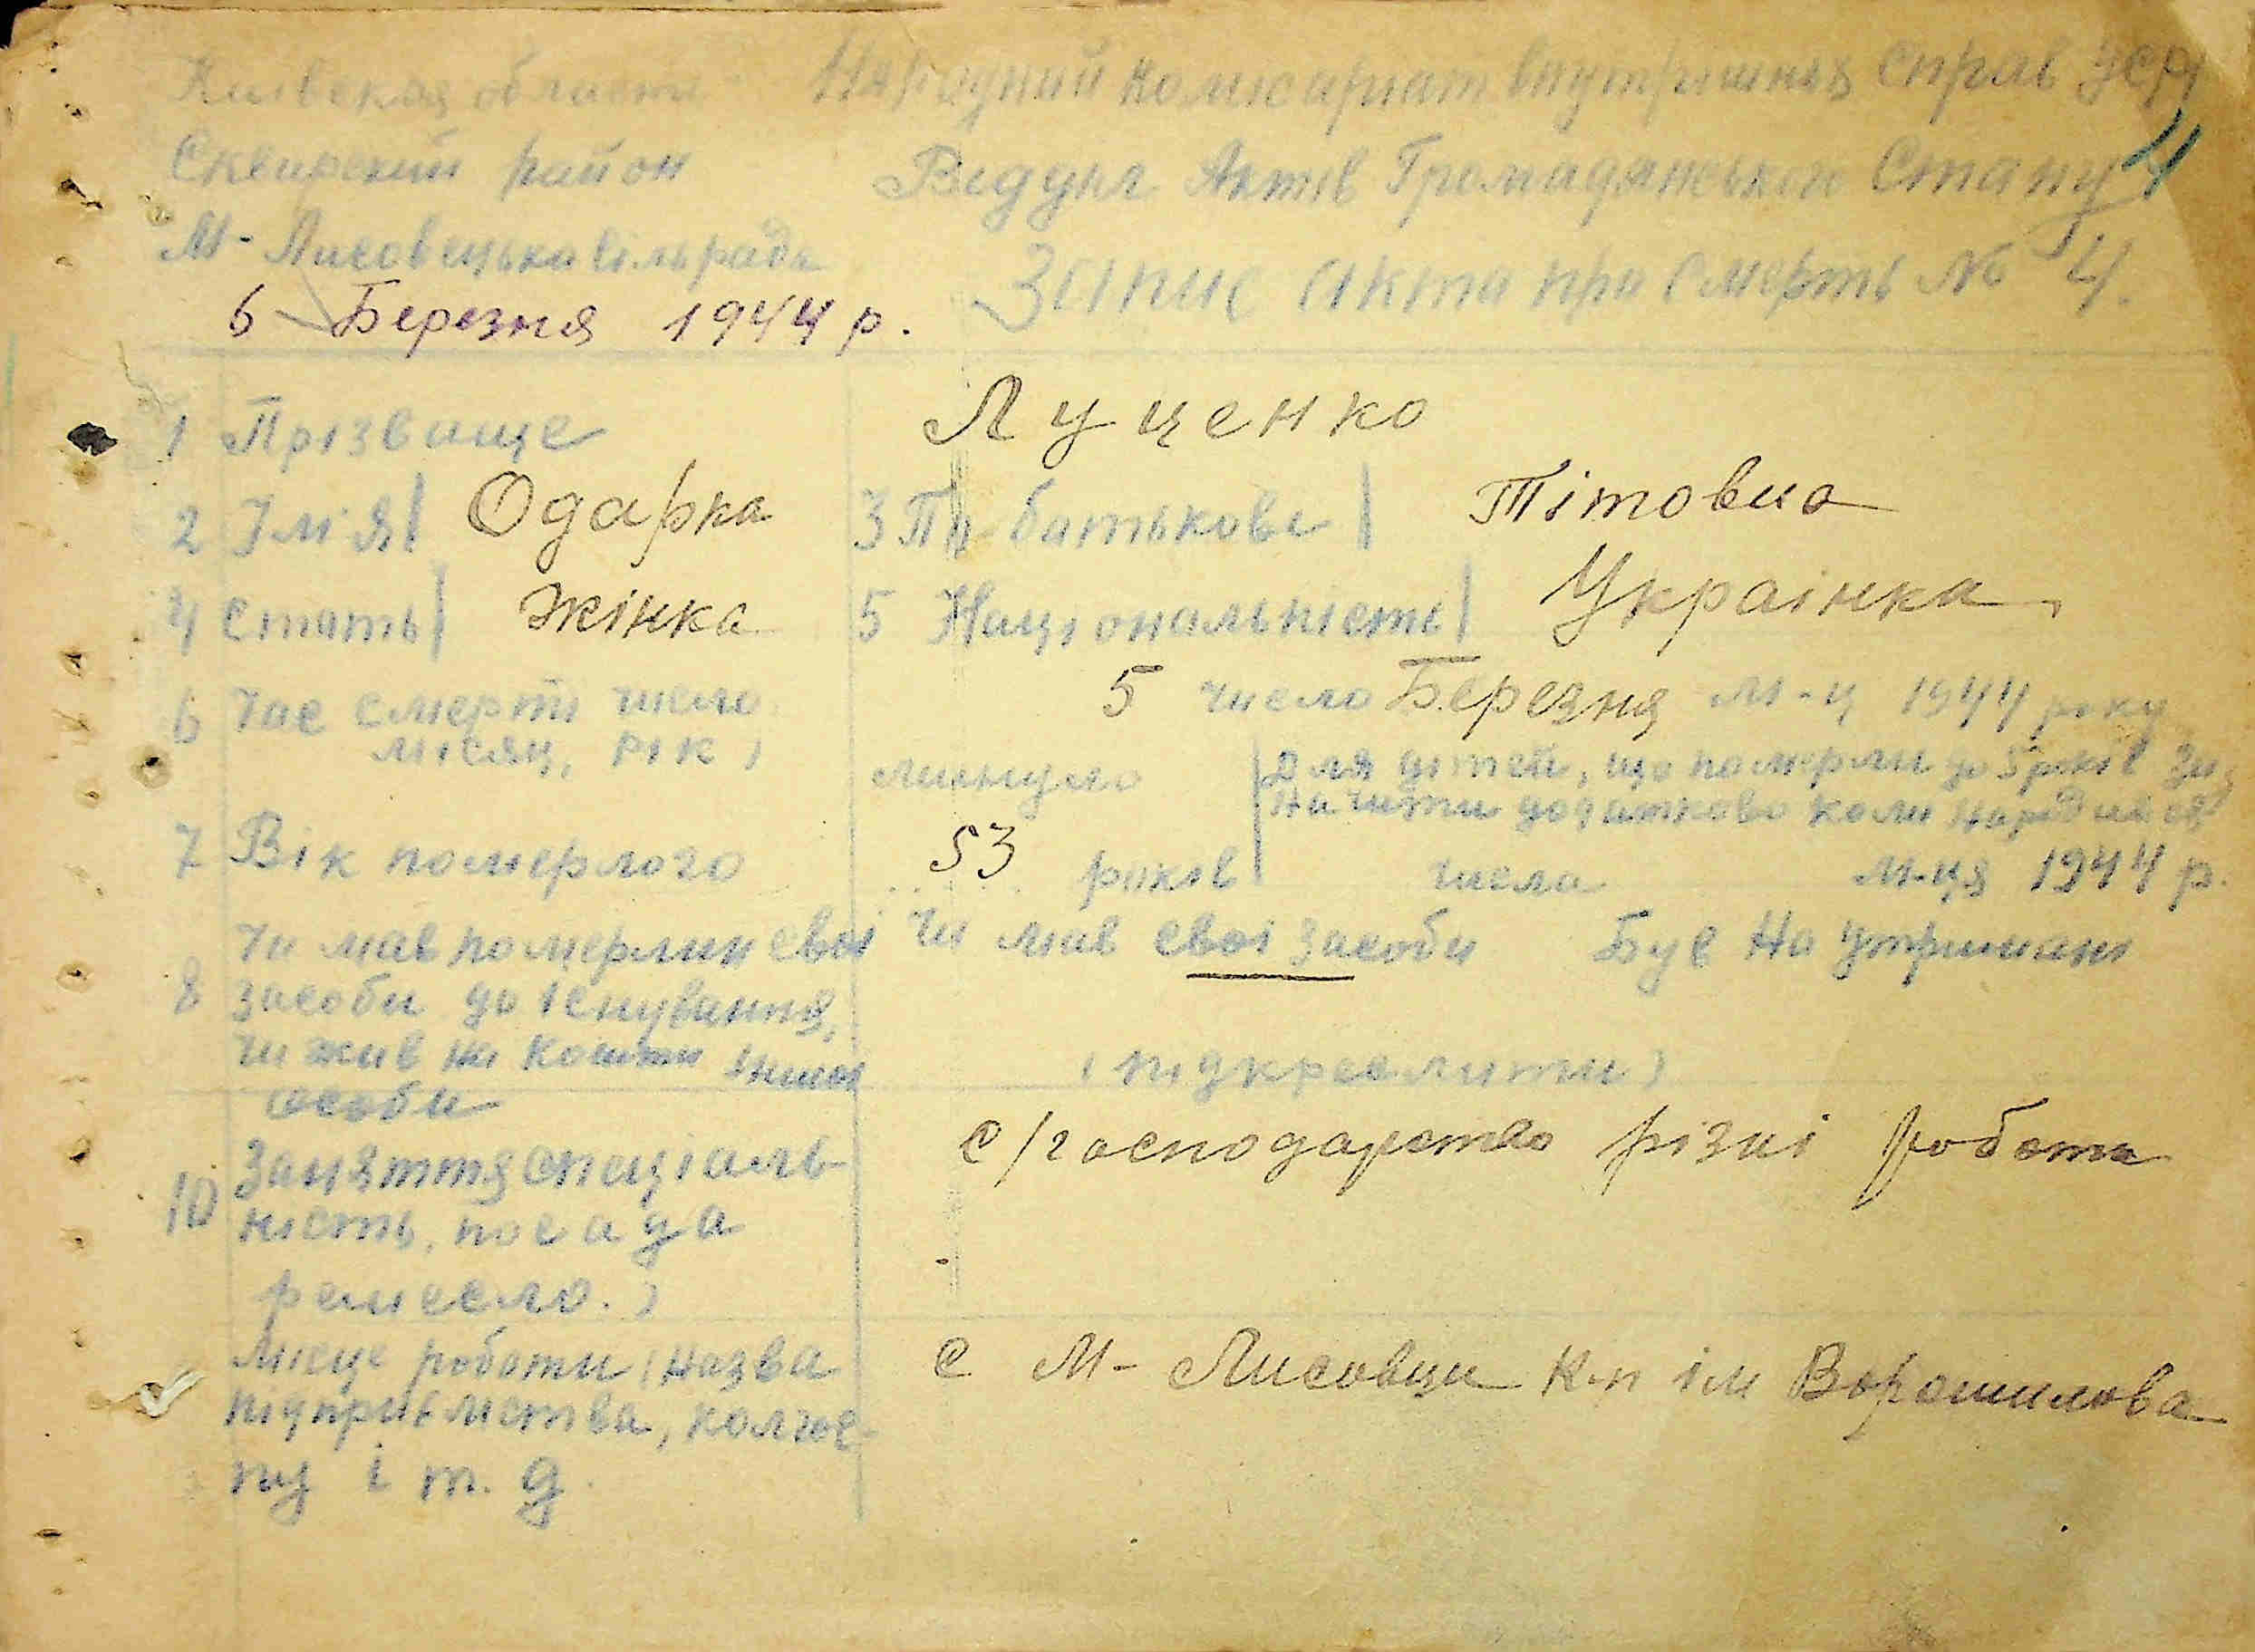 Київская область Народний комісаріат внутрішніх справ УСРР
Сквирский район Віддил Актів Громадянського Стану 4
М-Лисовецька сільрада Запис акта про смерть № 4.
6 Березня 1944 р.
1 Прізвище Луценко
2 Імія Одарка 3 По батькові Тітовна
4 Стать Жінка 5 Національність Українка
6 Час смерті число місяц, рік) 5 число Березня м-ц 1944 року
7 Вік померлого минуло 53 років
Для дітей, що померли до 5 років
значити додатково коли народився
числа м-ця 1944 р.
8 Чи мав померлий свої Чи мав свої засоби Був на утримані
засоби до існування,
чи жив на кошти іншої (підкреслити)
особи
10 Заняття спеціаль- с/господарство різні роботи
ність, посада
ремесло.)
Місце роботи (назва с М-Лисовци К-п ім Ворошилова
підприємства, колгос-
пу і т. д.